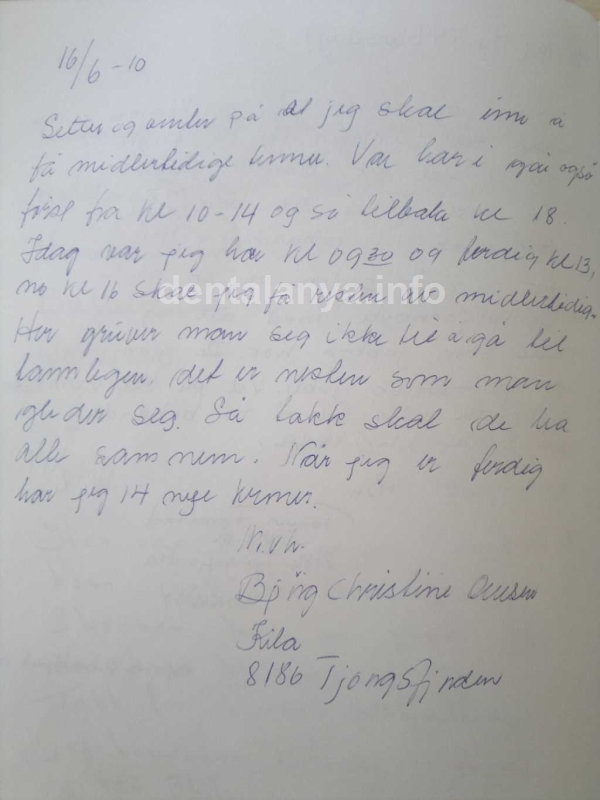 16/6-10
Sitter og venter på at jeg skal inn å
få midlertidige kroner. Var her i går også
først fra kl 10-14 og så tilbake kl 18.
Idag var jeg her kl 0930 og ferdig kl 13,
no kl 16 skal jeg få resten av midlertidig.
Her gruver man seg ikke til å gå til
tannlegen, det er nesten som man
gleder seg. Så takk skal de ha
alle sammen. Når jeg er ferdig
har jeg 14 nye kroner.
M.v.h.
Bjørg Christine
Kila
8186 Tjongsfjorden
dentalanya.info